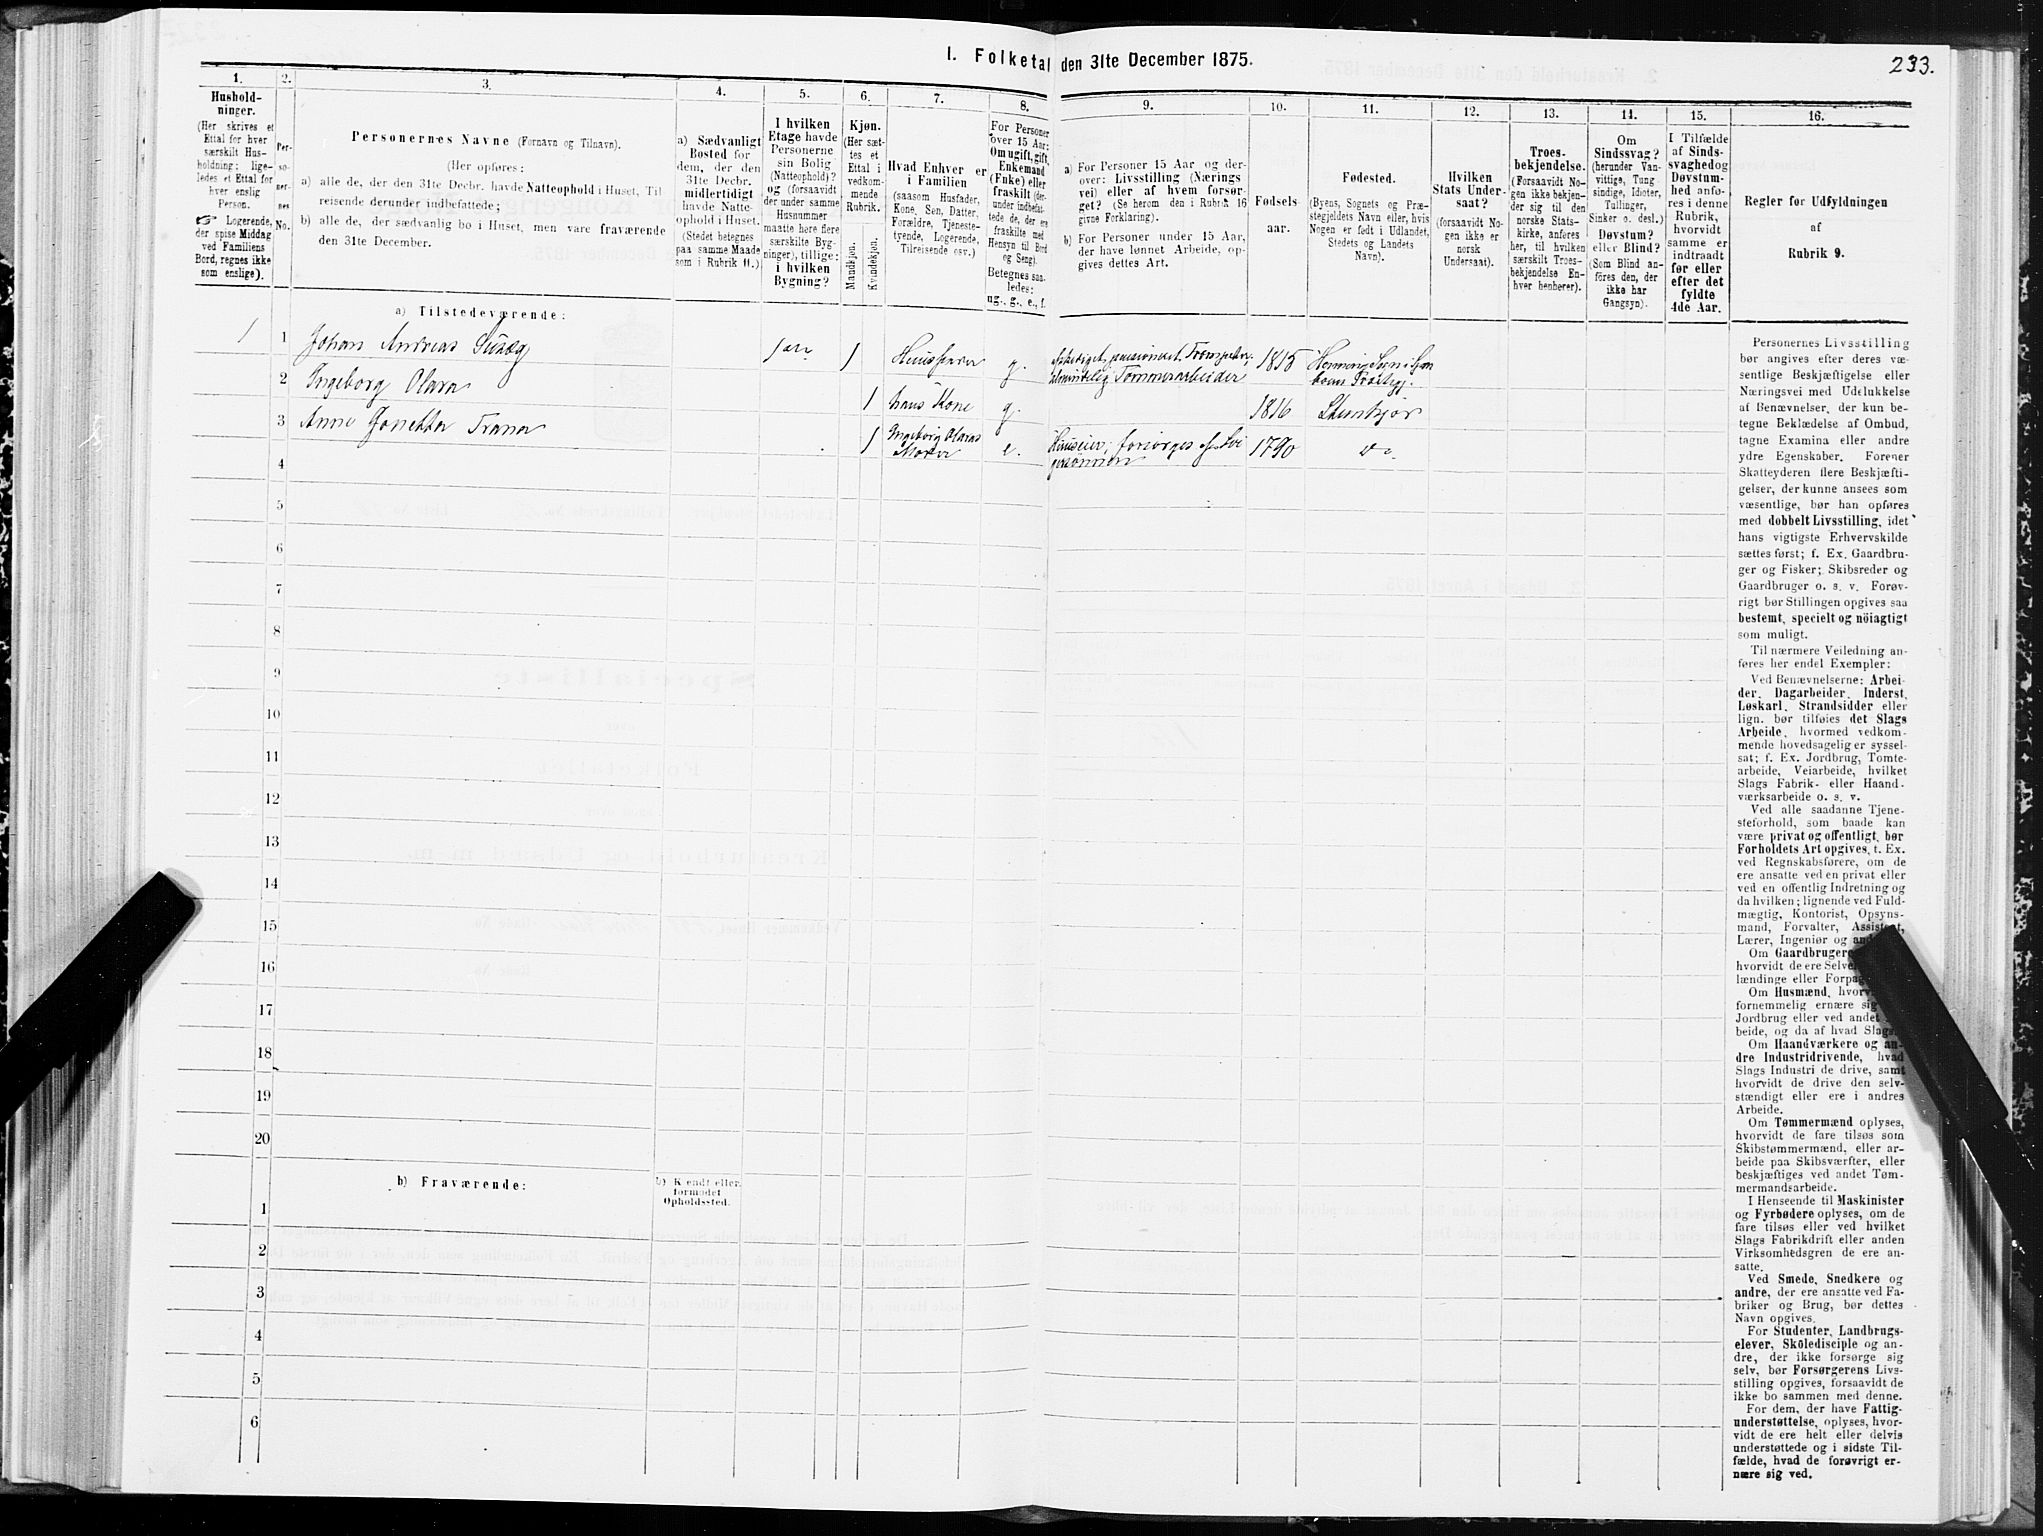 I. Folketal den 31te December 1875.
233.
1.
Hushold-
ninger.
(Her skrives et
Ettal for hver
særskilt Hus-
holdning; lige-
ledes et Ettal for
hver enslig
Person.
☞ Logerende,
der spise Middag
ved Familiens
Bord, regnes ikke
som enslige).
2.
Per-
so-
ner-
nes
No.
3.
Personernes Navne (Fornavn og Tilnavn).
(Her opføres:
a) alle de, der den 31te Decbr. havde Natteophold i Huset, Til-
reisende derunder indbefattede;
b) alle de, der sædvanlig bo i Huset, men vare fraværende
den 31te December.
4.
a) Sædvanligt
Bosted for
dem, der den
31te Decbr.
midlertidigt
havde Natte-
ophold i Huset.
(Stedet betegnes
paa samme Maade
som i Rubrik 11.)
5.
I hvilken
Etage havde
Personerne
sin Bolig
(Natteophold)?
og (forsaavidt
der under samme
Husnummer
maatte høre flere
særskilte Byg-
ninger), tillige:
i hvilken
Bygning?
6.
Kjøn.
(Her sæt-
tes et
Ettal i
vedkom-
mende
Rubrik.
Mandkjøn.
Kvindekjøn.
7.
Hvad Enhver er
i Familien
(saasom Husfader,
Kone, Søn, Datter,
Forældre, Tjeneste-
tyende, Logerende,
Tilreisende osv.)
8.
For Personer
over 15 Aar:
Om ugift, gift,
Enkemand
(Enke) eller
fraskilt (der-
under indbefat-
tede de, der ere
fraskilte med
Hensyn til Bord
og Seng).
Betegnes saa-
ledes:
ug., g., e., f.
9.
a) For Personer 15 Aar og der-
over: Livsstilling (Nærings-
vei) eller af hvem forsør-
get? (Se herom den i Rubrik 16
givne Forklaring).
b) For Personer under 15 Aar,
der have lønnet Arbeide, op-
gives dettes Art.
10.
Fødsels-
aar.
11.
Fødested.
(Byens, Sognets og Præ-
stegjeldets Navn eller, hvis
Nogen er født i Udlandet,
Stedets og Landets
Navn).
12.
Hvilken
Stats Under-
saat?
(forsaavidt No-
gen ikke er
norsk
Undersaat).
13.
Troes-
bekjendelse.
(Forsaavidt No-
gen ikke bekjen-
der sig til den
norske Stats-
kirke, anføres
her, til hvilken
særskilt Troes-
bekjendelse En-
hver henhører).
14.
Om
Sindssvag?
(herunder Van-
vittige, Tung-
sindige, Idioter,
Tullinger,
Sinker o. desl.)
Døvstum?
eller Blind?
(Som Blind an-
føres den, der
ikke har
Gangsyn).
15.
I Tilfælde
af Sinds-
svaghed og
Døvstum-
hed anfø-
res i denne
Rubrik,
hvorvidt
samme er
indtraadt
før eller
efter det
fyldte
4de Aar.
16.
Regler for Udfyldningen
af
Rubrik 9.
a) Tilstedeværende:
1 1 Johan Andreas 1 Huusfader g. pensioneret 1815
Tømmerarbeider
2 Ingeborg Olava 1 hans Kone g. 1816 Stenkjør
3 Anne Trana 1 Ingeborg Olavas e. Huuseier, forsørges af Svi- 1790 do.
Moder gersønnen
4
5
6
7
8
9
10
11
12
13
14
15
16
17
18
19
20
b) Fraværende:
b) Kjendt eller
formodet
Opholdssted.
1
2
3
4
5
6
Personernes Livsstilling
bør angives efter deres væ-
sentlige Beskjæftigelse eller
Næringsvei med Udelukkelse
af Benævnelser, der kun be-
tegne Beklædelse af Ombud,
tagne Examina eller andre
ydre Egenskaber. Forener
Skatteyderen flere Beskjæfti-
gelser, der kunne ansees som
væsentlige, bør han opføres
med dobbelt Livsstilling, idet
hans vigtigste Erhvervskilde
sættes først; f. Ex. Gaardbru-
ger og Fisker; Skibsreder og
Gaardbruger o. s. v. Forøv-
rigt bør Stillingen opgives saa
bestemt, specielt og nöiagtigt
som muligt.
Til nærmere Veiledning an-
føres her endel Exempler:
Ved Benævnelserne: Arbei-
der, Dagarbeider, Inderst,
Løskarl, Strandsidder eller
lign. bør tilføies det Slags
Arbeide, hvormed vedkom-
mende hovedsagelig er syssel-
sat; f. Ex. Jordbrug, Tomte-
arbeide, Veiarbeide, hvilket
Slags Fabrik- eller Haand-
værksarbeide o. s. v.
Ved alle saadanne Tjene-
steforhold, som baade kan
være privat og offentligt, bør
Forholdets Art opgives, t. Ex.
ved Regnskabsførere, om de
ere ansatte ved en privat eller
ved en offentlig Indretning og
da hvilken; lignende ved Fuld-
mægtig, Kontorist, Opsyns-
mand, Forvalter, Assistent,
Lærer, Ingeniør og
Om Gaardbrugere
hvorvidt de ere
lændinge eller
Om Husmænd,
fornemmelig ernære sig
Jordbrug eller ved andet
beide, og da af hvad Slags.
Om Haandværkere og an-
dre Industridrivende, hvad
Slags Industri de drive, samt
hvorvidt de drive den selv-
stændigt eller ere i andres
Arbeide.
Om Tømmermænd oplyses,
hvorvidt de fare tilsøs som
Skibstømmermænd, eller ar-
beide paa Skibsværfter, eller
beskjæftiges ved andet Tøm-
mermandsarbeide.
I Henseende til Maskinister
og Fyrbødere oplyses, om de
fare tilsøs eller ved hvilket
Slags Fabrikdrift eller anden
Virksomhedsgren de ere an-
satte.
Ved Smede, Snedkere og
andre, der ere ansatte ved Fa-
briker og Brug, bør dettes
Navn opgives.
For Studenter, Landbrugs-
elever, Skoledisciple og an-
dre, der ikke forsørge sig
selv, bør Forsørgerens Livs-
stilling opgives, forsaavidt de
ikke bo sammen med denne.
For dem, der have Fattig-
understøttelse, oplyses, hvor-
vidt de ere helt eller delvis
understøttede og i sidste Til-
fælde, hvad de forøvrigt er-
nære sig ved.